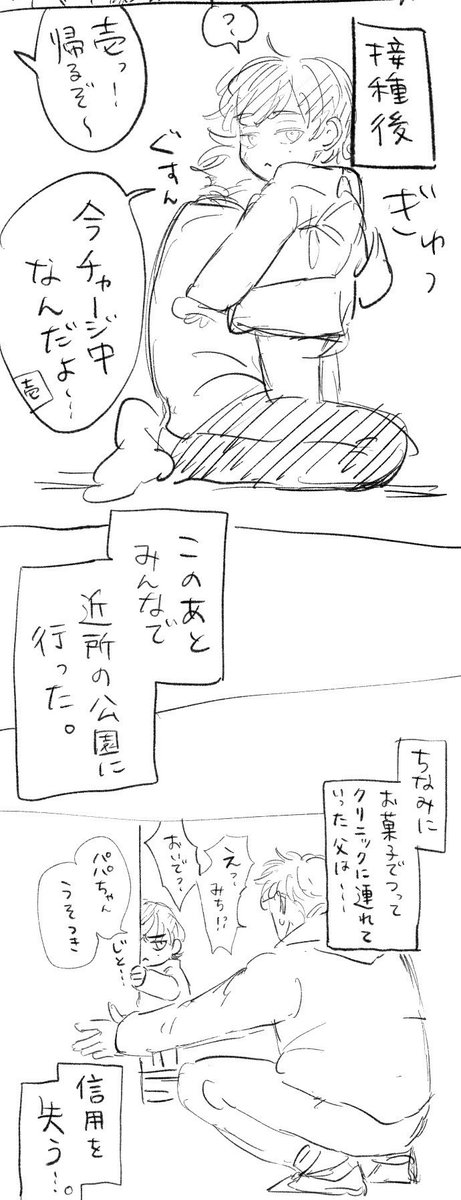 接種後
?
壱っ!
帰るぞ〜
ぐすん
ぎゅっ
今チャージ中
なんだよ…
壱
このあと
みんなで
近所の公園に
行った。
ちなみに
お菓子でつって
クリニックに連れて
いった父は…
えっ
みち!?
おいで?
パパちゃん
うそつき
じと…
信用を
失う…。